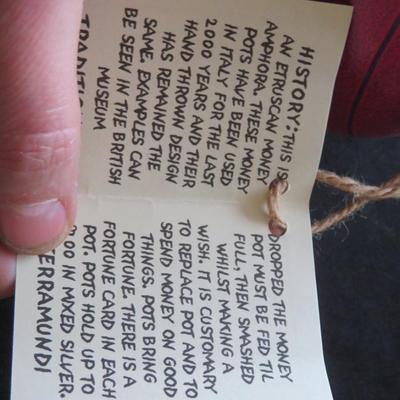 HISTORY: THIS IS
AN ETRUSCAN MONEY
AMPHORA. THESE MONEY
POTS HAVE BEEN USED
IN ITALY FOR THE LAST
2000 YEARS AND THEIR
HAND THROWN DESIGN
HAS REMAINED THE
SAME. EXAMPLES CAN
BE SEEN IN THE BRITISH
MUSEUM
DROPPED THE MONEY
POT MUST BE FED TIL
FULL, THEN SMASHED
WHILST MAKING A
WISH. IT IS CUSTOMARY
TO REPLACE POT AND TO
SPEND MONEY ON GOOD
THINGS. POTS BRING
FORTUNE. THERE IS A
FORTUNE CARD IN EACH
POT. POTS HOLD UP TO
IN MIXED SILVER.
ERRAMUNDI